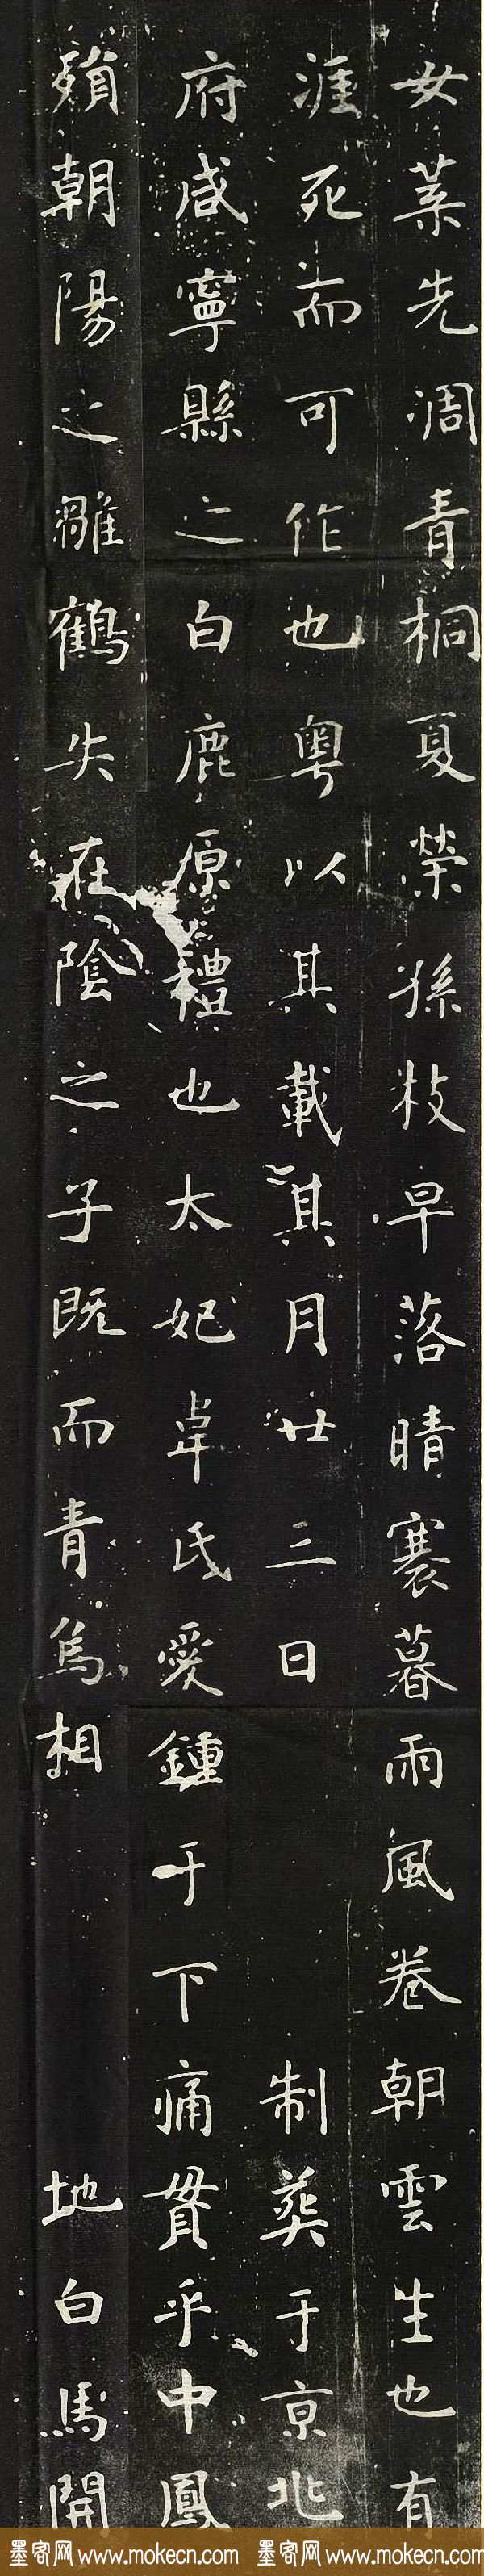 女蘂先凋青桐夏榮孫枝早落晴褰暮雨風卷朝雲生也有
涯死而可作也粵以其載其月廿三日制葬于京兆
府咸寧縣之白鹿原禮也太妃韋氏愛鍾于下痛貫乎中鳳
殞朝陽之雛鶴失在陰之子既而青烏相地白馬開
墨客网 www.mokecn.com 墨客网 www.mokecn.com